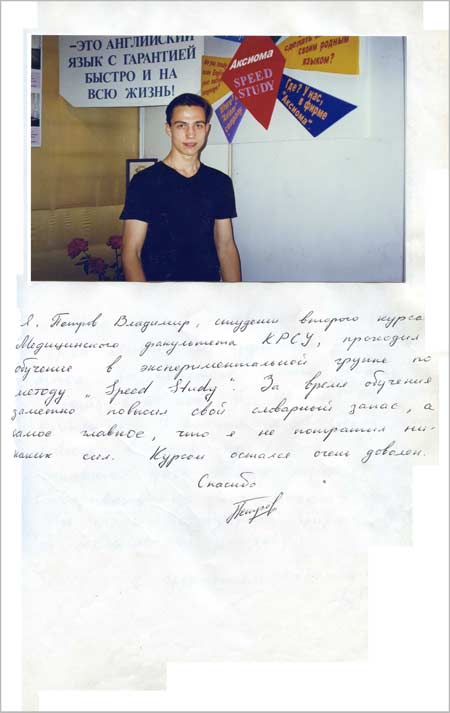 –ЭТО АНГЛИЙСКИЙ
ЯЗЫК С ГАРАНТИЕЙ
БЫСТРО И НА
ВСЮ ЖИЗНЬ!
Аксиома
SPEED
STUDY
сделать
своим родным
языком?
Где? У нас,
в фирме
"Аксиома"
Я, Петров Владимир, студент второго курса
Медицинского факультета КРСУ, проходил
обучение в экспериментальной группе по
методу „Speed Study". За время обучения
заметно повысил свой словарный запас, а
самое главное, что я не потратил ни-
каких сил. Курсом остался очень доволен.
Спасибо
Петров